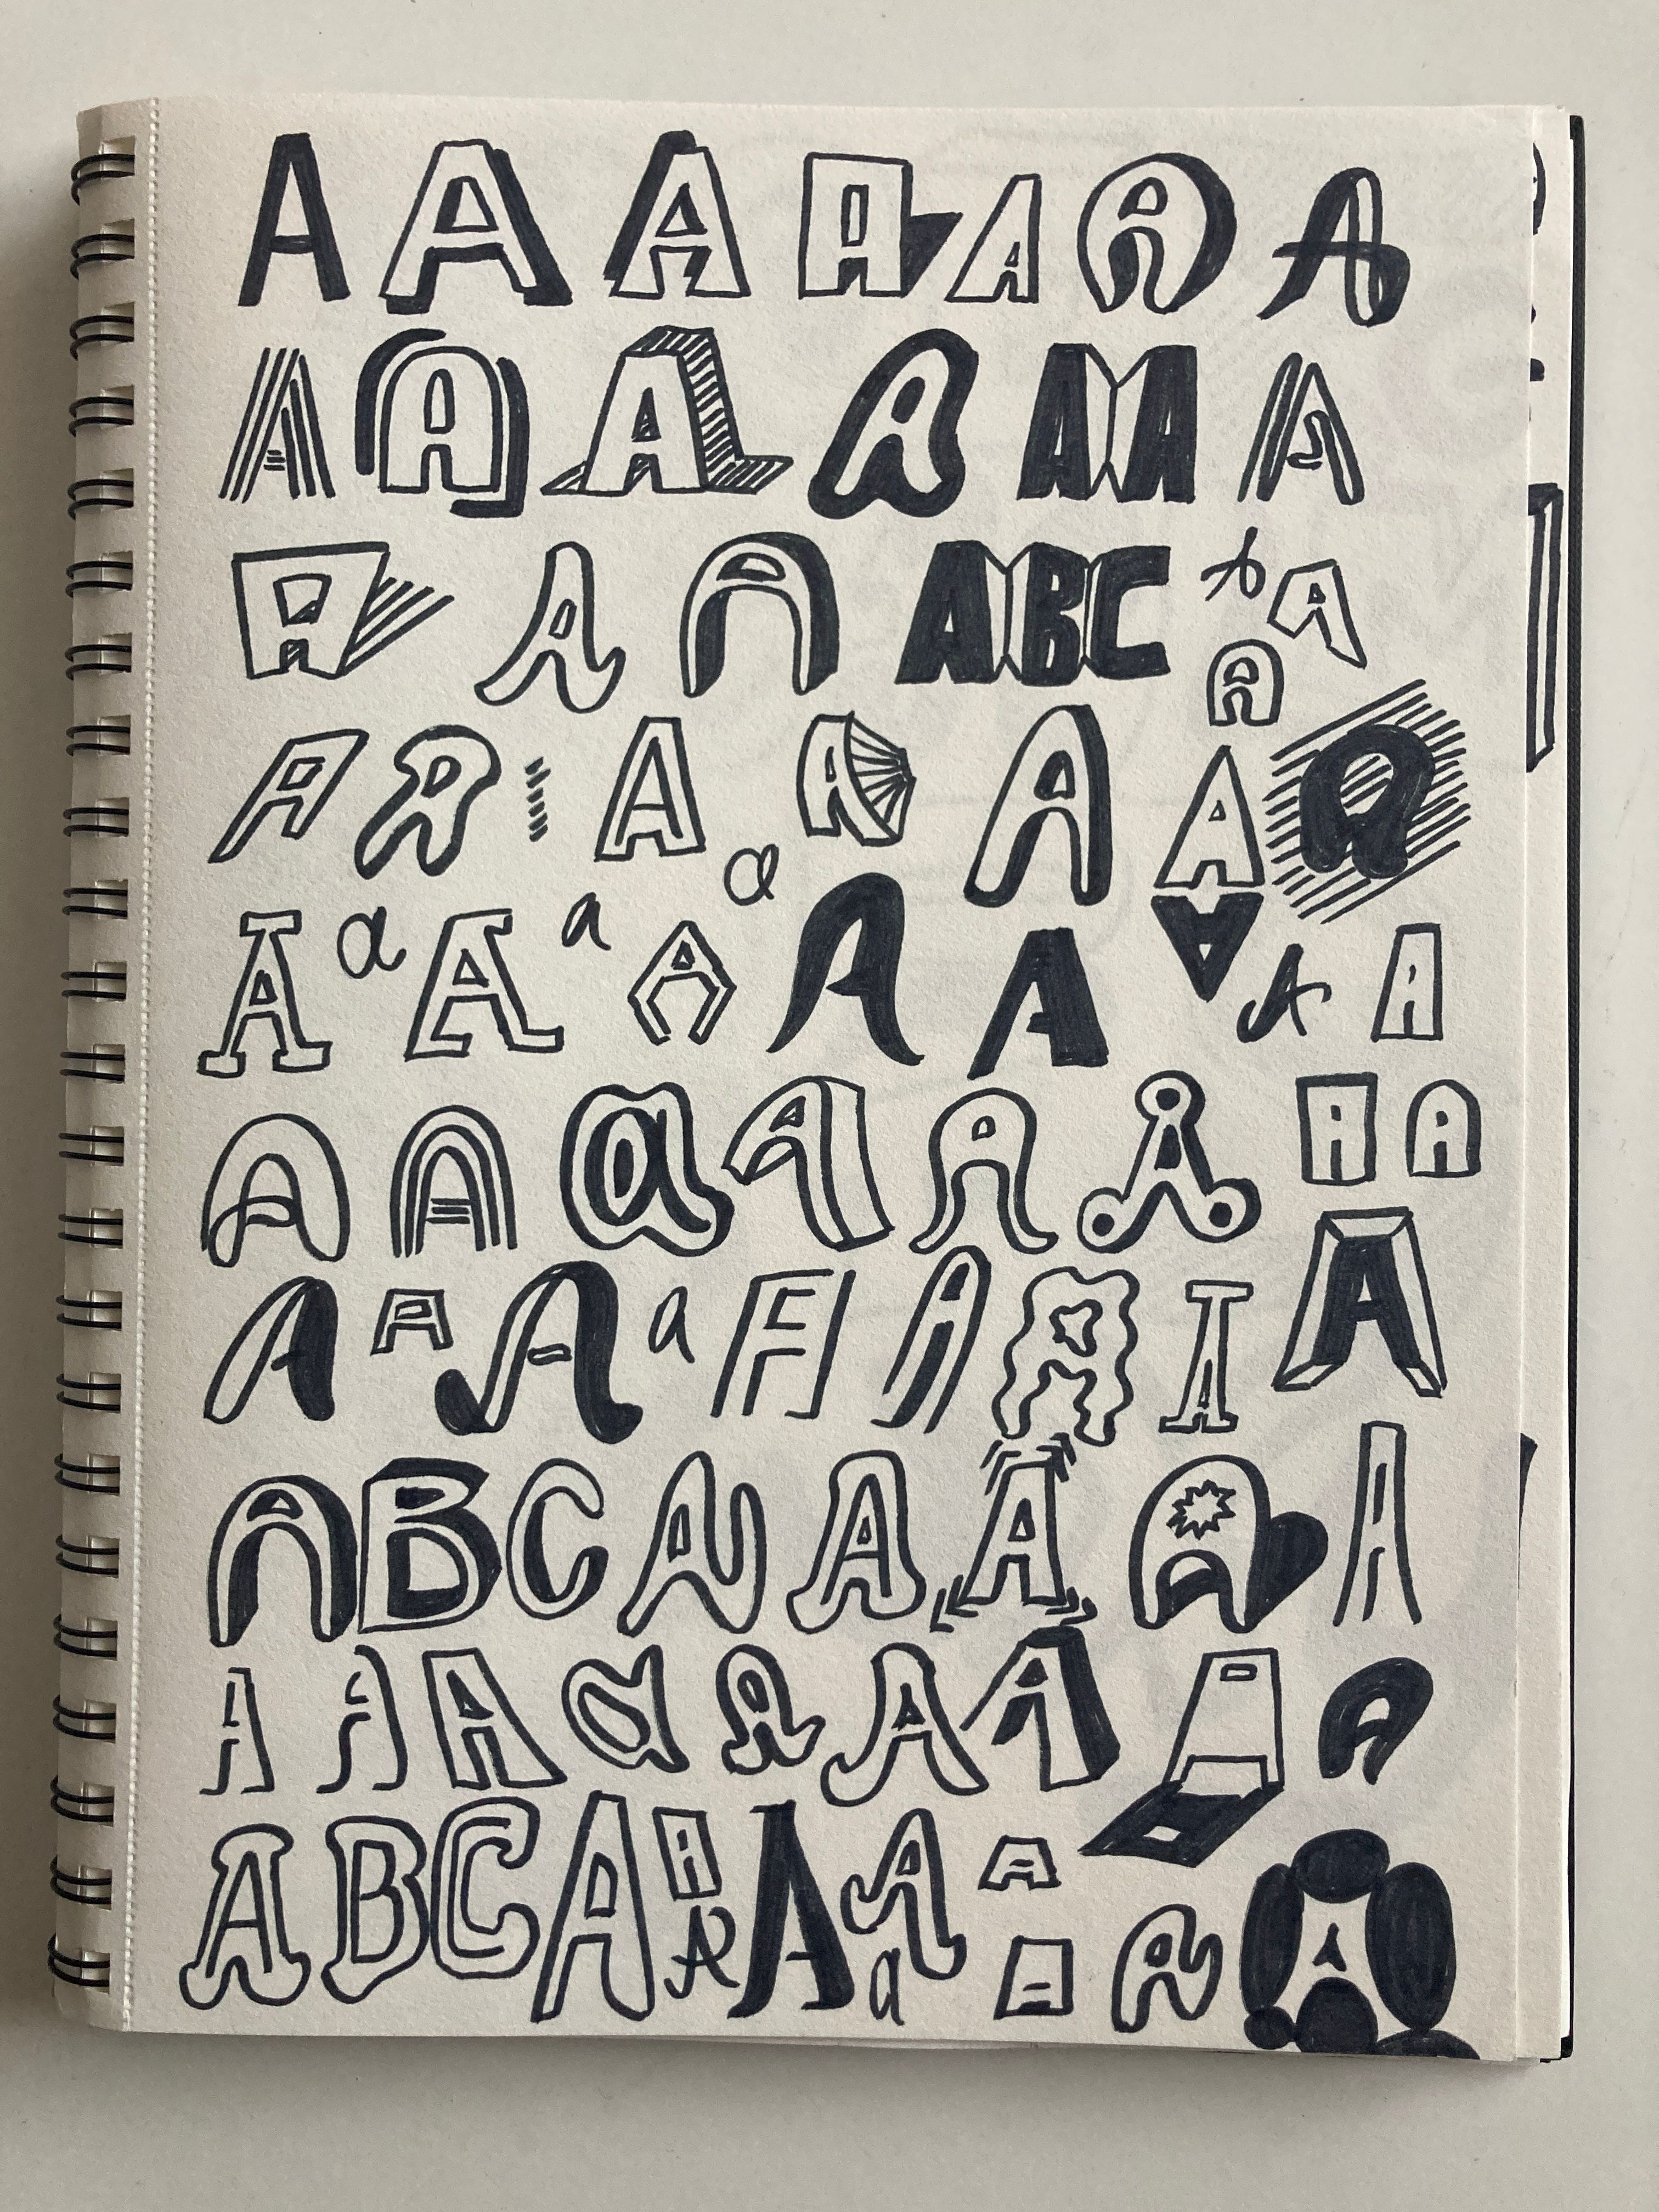 A A A A A A A
A A A A A A A
A A A ABC A A A
A A A A A A A
A a A a A a A A A A A
A A a A A A A A
A A A a A A A A A
ABC A A A A A
A A A a A A A A A
ABC A A A A A A a A A A